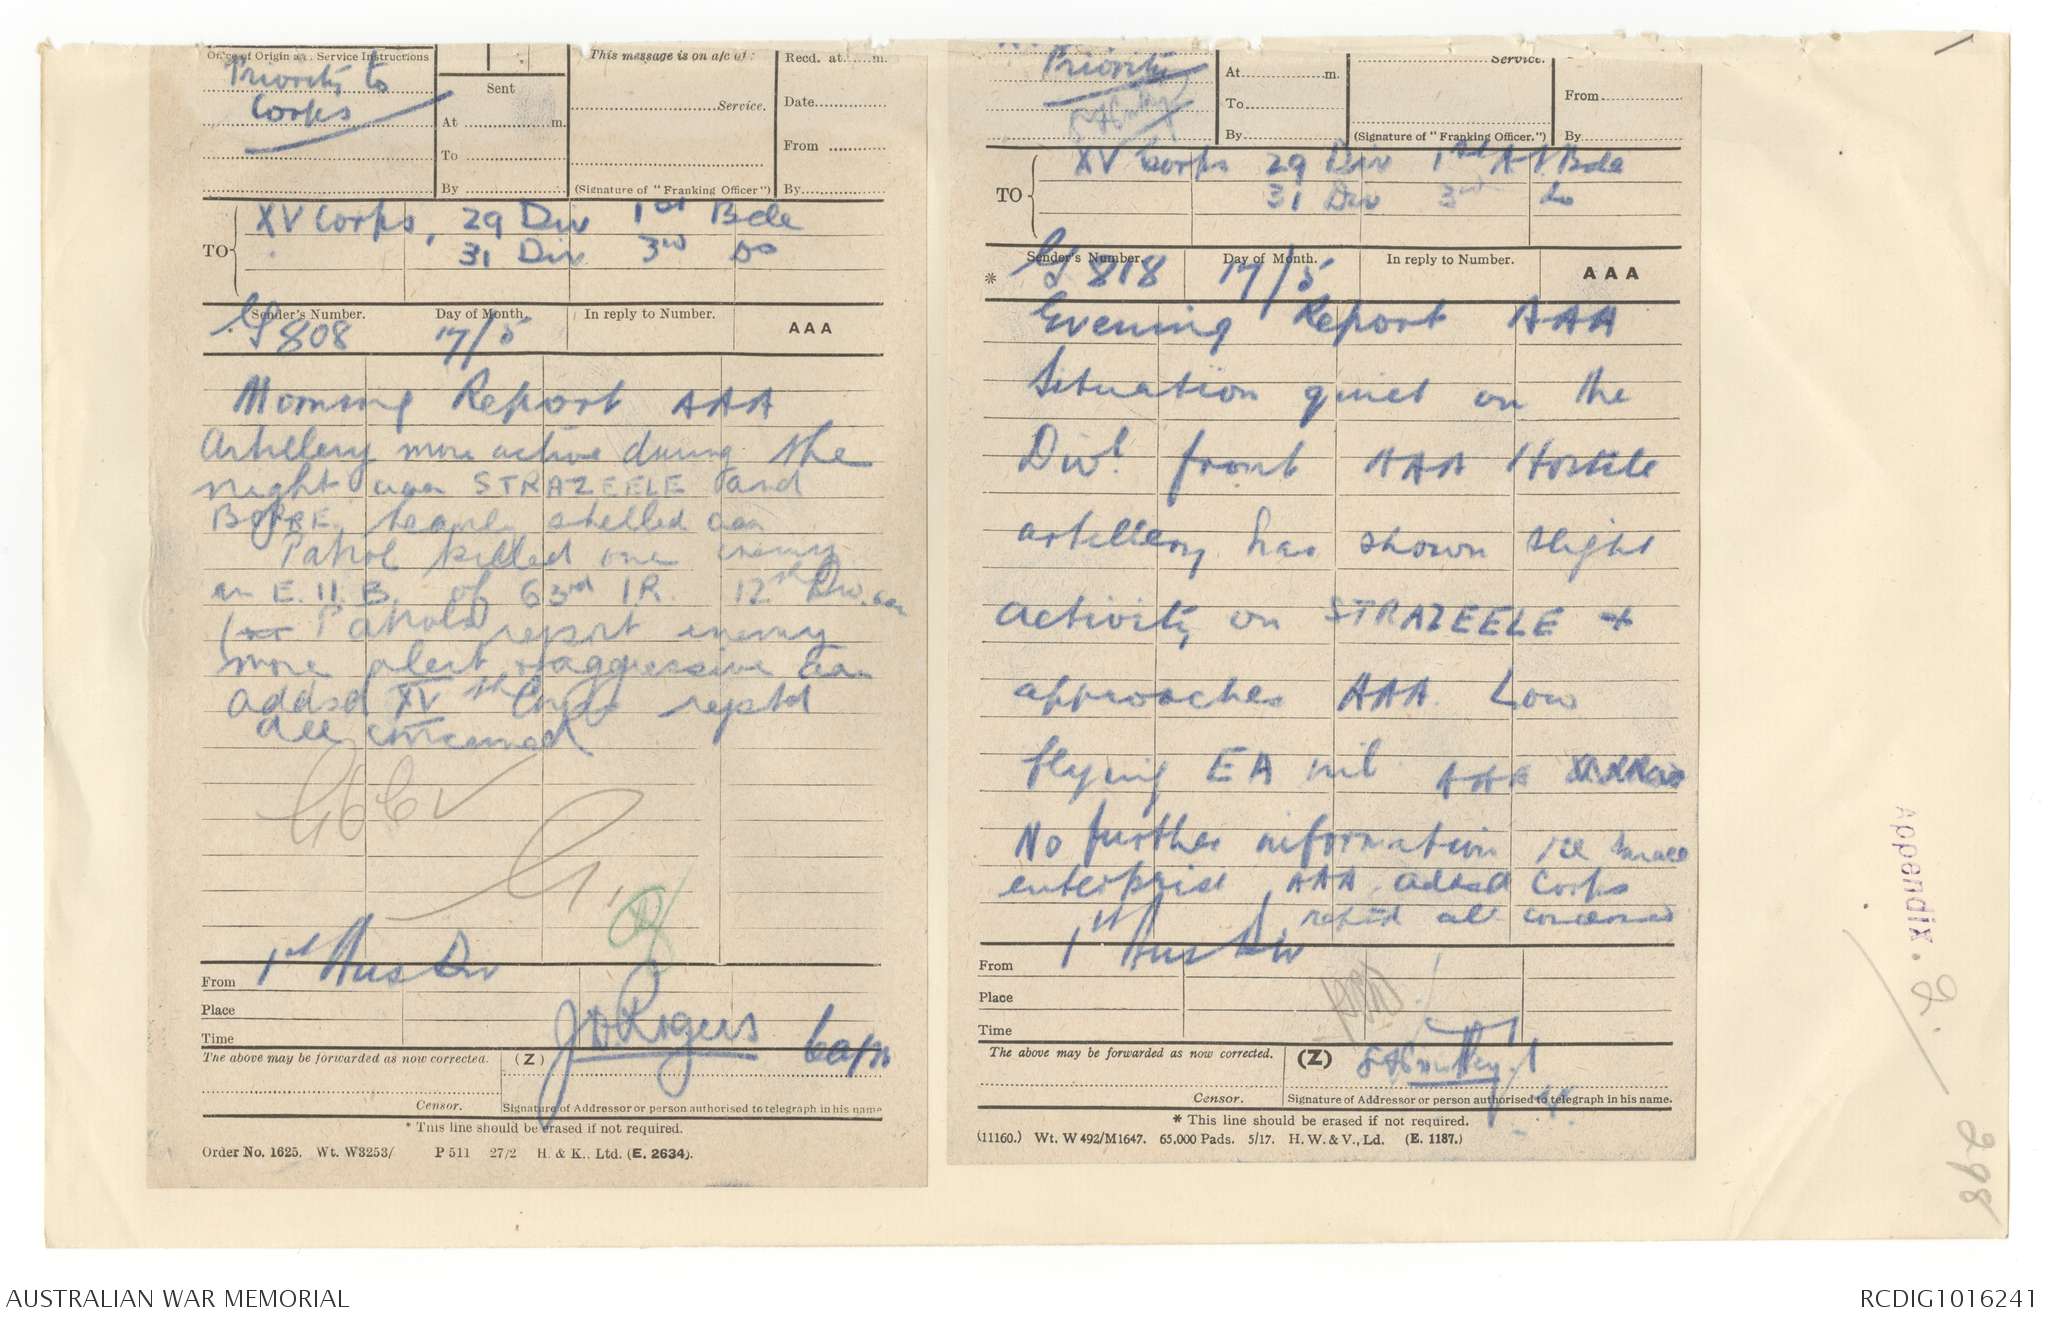 Office of Origin and Service Instructions
Priority to
Corps
Sent
At ........ m.
To
By
This message is on a/c of:
Service.
(Signature of "Franking Officer")
Recd. at ...... m.
Date
From
By
TO
XV Corps, 29 Div 1st Bde
31 Div 3rd Do
Sender's Number. Day of Month. In reply to Number. AAA
G 808 17/5
Morning Report AAA
Artillery more active during the
night aaa STRAZEELE and
BORRE heavily shelled aaa
Patrol killed one enemy
an E.U.B. of 63rd IR. 12th Div. aaa
Patrols report enemy
more alert & aggressive aaa
addsd XVth Corps reptd
all concerned
G.
From 1st Aus Div
Place
Time
The above may be forwarded as now corrected. (Z)
J D Rogers Capt
Censor. Signature of Addressor or person authorised to telegraph in his name
* This line should be erased if not required.
Order No. 1625. Wt. W3253/ P 511 27/2 H. & K., Ltd. (E. 2634).
Priority
At ...... m.
To
By
Service.
(Signature of "Franking Officer.")
From
By
TO
XV Corps 29 Div 1st A I Bde
31 Div 3rd do
* Sender's Number. Day of Month. In reply to Number. AAA
G 818 17/5
Evening Report AAA
Situation quiet on the
Divl front AAA Hostile
artillery has shown slight
activity on STRAZEELE +
approaches AAA Low
flying EA nil AAA
No further information re
enterprise AAA addsd Corps
reptd all concerned
From 1st Aus Div
Place
Time
The above may be forwarded as now corrected. (Z)
Censor. Signature of Addressor or person authorised to telegraph in his name.
* This line should be erased if not required.
(11160.) Wt. W 492/M1647. 65,000 Pads. 5/17. H. W. & V., Ld. (E. 1187.)
Appendix. 2.
298
AUSTRALIAN WAR MEMORIAL
RCDIG1016241